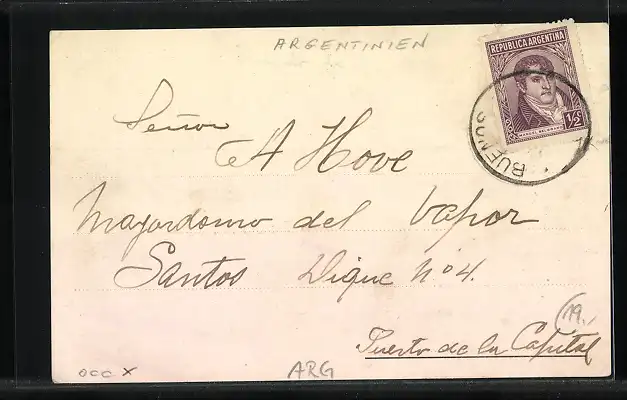 ARGENTINIEN
REPUBLICA ARGENTINA
MANUEL BELGRANO
1/2
BUENOS
Señor
A Hove
Mayordomo del Vapor
Santos Dique Nº 4.
19.-
Puerto de la Capital
OCC X
ARG